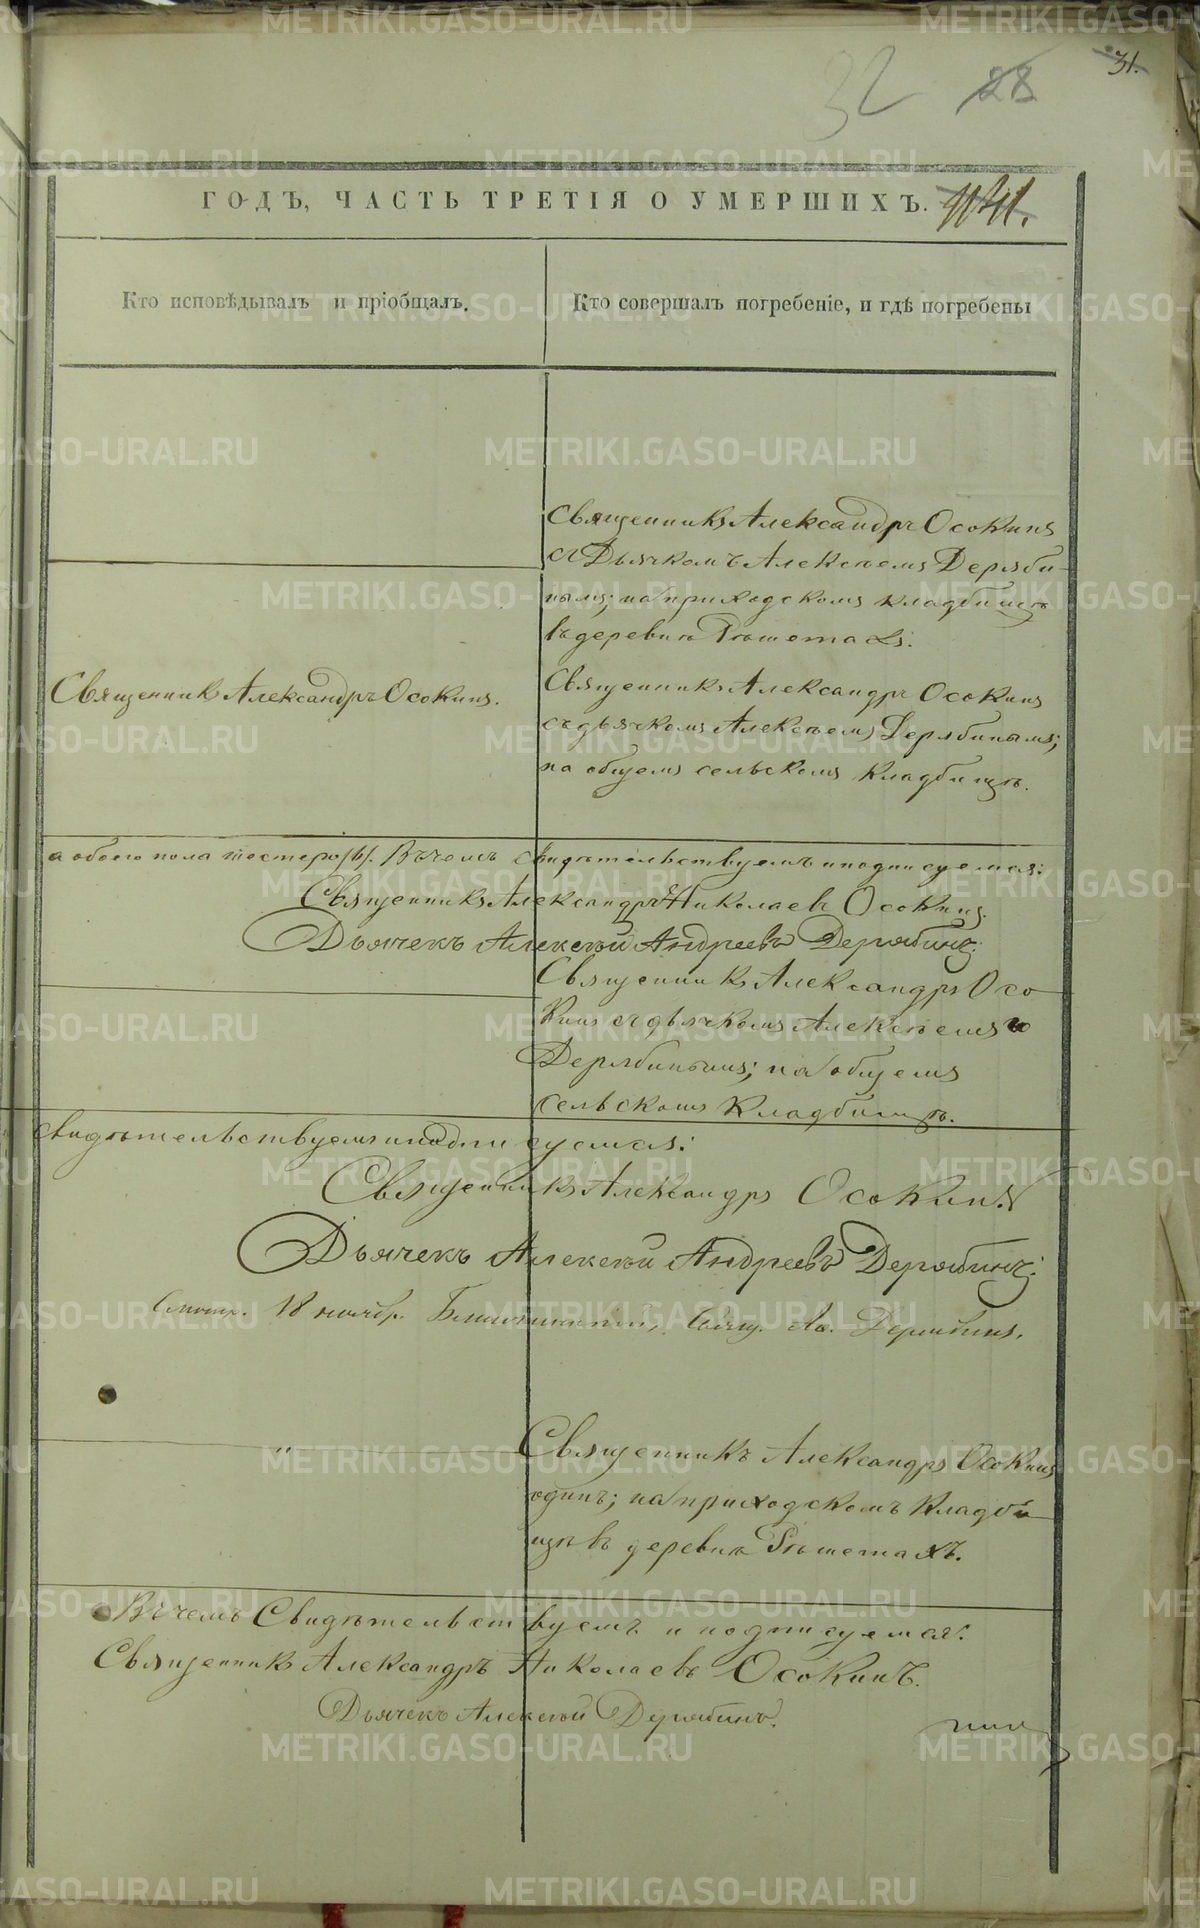 31.
32 28
ГОДЪ, ЧАСТЬ ТРЕТІЯ О УМЕРШИХЪ.
Кто исповѣдывалъ и пріобщалъ.
Кто совершалъ погребеніе, и гдѣ погребены
Священникъ Александръ Осокинъ
съ Дьячкомъ Алексѣемъ Деряби-
нымъ; на приходскомъ кладбищѣ
въ деревнѣ Рѣшетахъ.
Священникъ Александръ Осокинъ.
Священникъ Александръ Осокинъ
съ дьячкомъ Алексѣемъ Дерябинымъ;
на общемъ сельскомъ кладбищѣ.
а обоего пола шестеро /6/. Въ чемъ свидѣтельствуемъ и подписуемся:
Священникъ Александръ Николаевъ Осокинъ.
Дьячекъ Алексѣй Андреевъ Дерябинъ.
Священникъ Александръ Осо
кинъ съ дьячкомъ Алексѣемъ
Дерябинымъ; на общемъ
сельскомъ кладбищѣ.
свидѣтельствуемъ и подписуемся:
Священникъ Александръ Осокинъ
Дьячекъ Алексѣй Андреевъ Дерябинъ.
18 ноябр. Свящ. Дерябинъ.
Священникъ Александръ Осокинъ
одинъ; на приходскомъ кладби
щѣ въ деревнѣ Рѣшетахъ.
Въ чемъ Свидѣтельствуемъ и подписуемся:
Священникъ Александръ Николаевъ Осокинъ.
Дьячекъ Алексѣй Дерябинъ.
METRIKI.GASO-URAL.RU